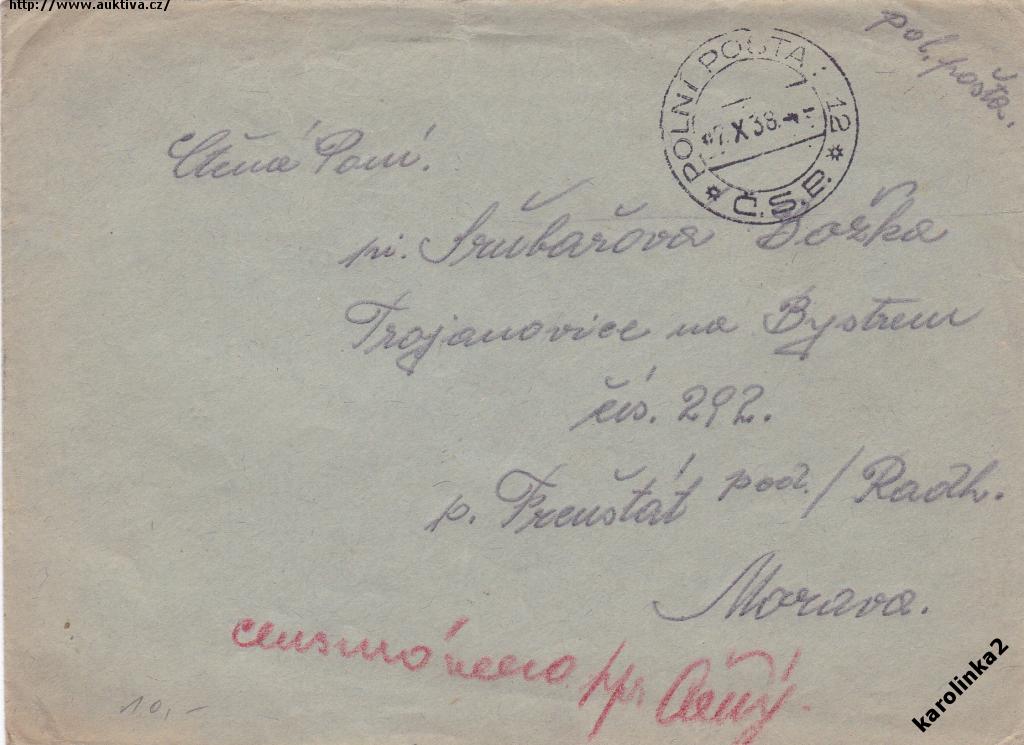 http://www.auktiva.cz/
pol. pošta.
POLNÍ POŠTA 12
7.X.38.-
Č.S.P.
Ctěná Paní.
pí. Srubařova Božka
Trojanovice na Bystrem
čís. 292.
p. Frenštát pod./Radh.
Morava.
10,-
karolinka2